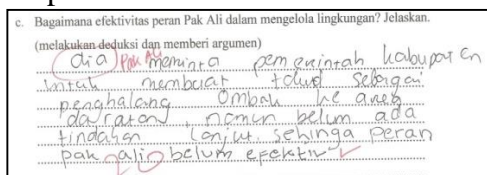 c. Bagaimana efektivitas peran Pak Ali dalam mengelola lingkungan? Jelaskan.
(melakukan deduksi dan memberi argumen)
dia Pak Ali meminta pemerintah kabupaten
untuk membuat talud sebagai
penghalang ombak ke areh
dayratan, namun belum ada
tindahan lanjut. sehinga peran
pak ali belum efektiv